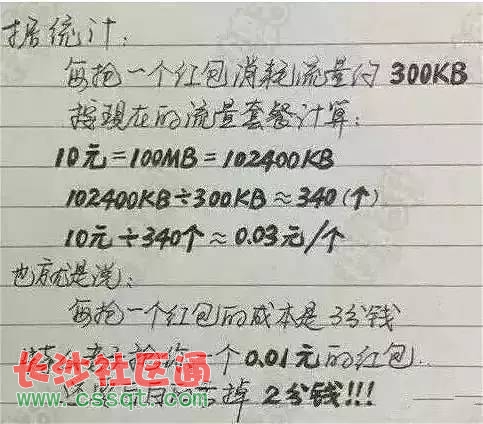 据统计:
每抢一个红包消耗流量约300KB
按現在的流量套餐计算:
10元=100MB=102400KB
102400KB÷300KB≈340(个)
10元÷340个≈0.03元/个
也就是说:
每抢一个红包的成本是3分钱
一个0.01元的红包..
掉2分钱!!!
长沙社区通
www.cssqt.com